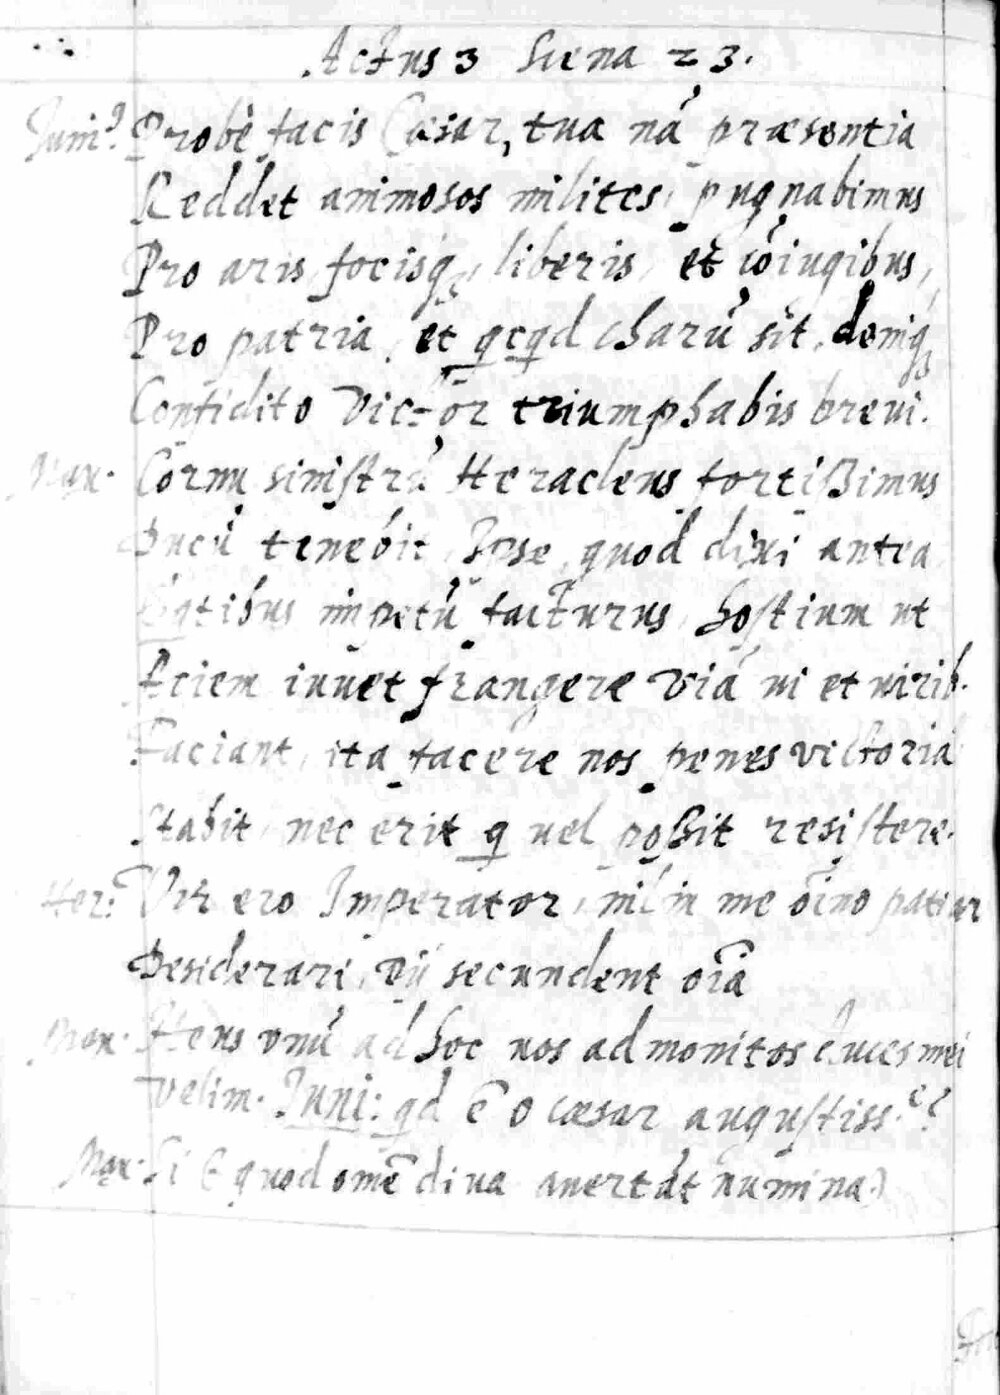 Actus 3 Scena 23.
Juni⁹ Probè facis Cæsar, tua nã præsentia
Reddet animosos milites, pugnabimus
Pro aris, focisq₃, liberis, et cõiugibus,
Pro patria, et qcqd charũ sit, deniq₃
Confidito Victor triumphabis breui.
Max. Cornu sinistrũ Heracleus fortißimus
Ducũ tenebit, Ipse, quod dixi antea
impetũ facturus, hostium ut
Aciem iuuet frangere viã ui et uirib.
Faciant, ita facere nos penes victoriã
Stabit, nec erit q uel poßit resistere.
Her: Vir ero Imperator, nil in me õino patiar
Desiderari, Dij secundent oĩa
Max. Heus vnũ ad hoc uos admonitos duces mei
Velim. Juni: qd ẽ o cæsar augustiss.e?
Max. Si (quod omẽ diua auertãt numina)